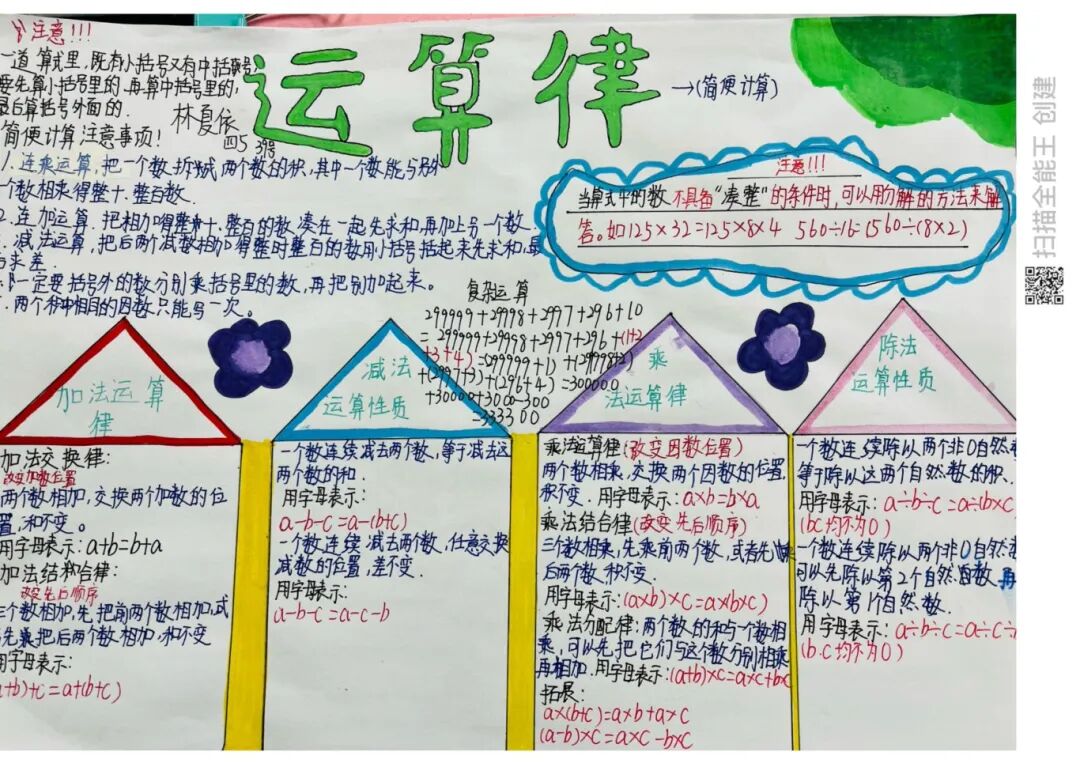 注意!!!
一道算式里,既有小括号又有中括号
要先算小括号里的,再算中括号里的,
最后算括号外面的.
简便计算注意事项!
林夏依
四5 39号
运算律
→(简便计算)
1.连乘运算,把一个数拆成两个数的积,其中一个数能与另
一个数相乘得整十.整百数.
2.连加运算.把相加得整十.整百的数凑在一起先求和,再加上另一个数.
减法运算,把后两个减数相加得整时整百的数用小括号括起来先求和,最
后求差.
一定要括号外的数分别乘括号里的数,再把别加起来。
两个积中相同的因数只能写一次。
注意!!!
当算式中的数不具备“凑整”的条件时,可以用分解的方法来解
答。如125×32=125×8×4 560÷16=(560÷(8×2)
复杂运算
299999+29998+2997+296+10
=299999+29998+2997+296+(1+2
+3+4)=(299999+1)+(29998+2)
+(2997+3)+(296+4)=300000
+30000+3000+300
=333300
加法运算
律
加法交换律:
改变加数位置
两个数相加,交换两个加数的位
置,和不变。
用字母表示:a+b=b+a
加法结和合律:
改变先后顺序
三个数相加,先把前两个数相加,或
先乘把后两个数相加,和不变
用字母表示:
(a+b)+c=a+(b+c)
减法
运算性质
一个数连续减去两个数,等于减去这
两个数的和.
用字母表示:
a-b-c=a-(b+c)
一个数连续减去两个数,任意交换
减数的位置,差不变.
用字母表示:
a-b-c=a-c-b
乘
法运算律
乘法运算律(改变因数位置)
两个数相乘,交换两个因数的位置,
积不变.用字母表示:a×b=b×a
乘法结合律(改变先后顺序)
三个数相乘,先乘前两个数,或者先乘
后两个数,积不变.
用字母表示:(a×b)×c=a×(b×c)
乘法分配律:两个数的和与一个数相
乘,可以先把它们与这个数分别相乘
再相加.用字母表示:(a+b)×c=a×c+b×c
拓展:
a×(b+c)=a×b+a×c
(a-b)×c=a×c-b×c
除法
运算性质
一个数连续除以两个非0自然
等于除以这两个自然数的积.
用字母表示:a÷b÷c=a÷(b×c)
(bc均不为0)
一个数连续除以两个非0自然
可以先除以第2个自然数,再
除以第1个自然数.
用字母表示:a÷b÷c=a÷c÷
(b.c均不为0)
扫描全能王 创建